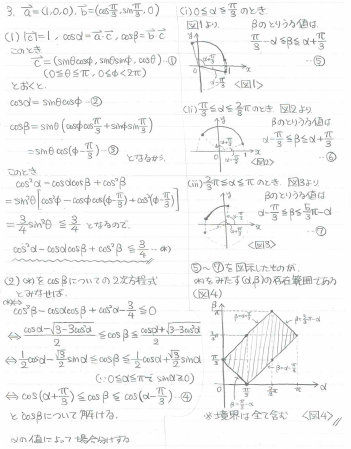 3. a⃗=(1,0,0), b⃗=(cosπ/3, sinπ/3, 0)
(1) |c⃗|=1, cosα=a⃗·c⃗, cosβ=b⃗·c⃗
このとき
c⃗=(sinθcosφ, sinθsinφ, cosθ) ―①
(0≦θ≦π, 0≦φ<2π)
とおくと、
cosα=sinθcosφ ―②
cosβ=sinθ(cosφcosπ/3+sinφsinπ/3)
=sinθcos(φ-π/3) ―③ となるから、
このとき
cos²α-cosαcosβ+cos²β
=sin²θ[cos²φ-cosφcos(φ-π/3)+cos²(φ-π/3)]
=3/4 sin²θ ≦ 3/4 となるので、
cos²α-cosαcosβ+cos²β ≦ 3/4
(2) (*)をcosβについての2次方程式
とみなせば、
cos²β-cosαcosβ+cos²α-3/4≦0
⇔ (cosα-√(3-3cos²α))/2 ≦cosβ≦ (cosα+√(3-3cos²α))/2
⇔ 1/2cosα-√3/2sinα≦cosβ≦1/2cosα+√3/2sinα
(∵0≦α≦πで sinα≧0)
⇔ cos(α+π/3)≦cosβ≦cos(α-π/3) ―④
とcosβについて解ける。
αの値によって場合分けする
(i) 0≦α≦π/3のとき、
図1より、
βのとりうる値は
π/3-α≦β≦α+π/3
―⑤
<図1>
(ii) π/3≦α≦2/3πのとき、図2より
βのとりうる値は
α-π/3≦β≦α+π/3
―⑥
<図2>
(iii) 2/3π≦α≦πのとき、図3より
βのとりうる値は
α-π/3≦β≦5/3π-α
―⑦
<図3>
⑤~⑦を図示したものが、
(*)をみたす(α,β)の存在範囲である
(図4)
※境界は全て含む
<図4>